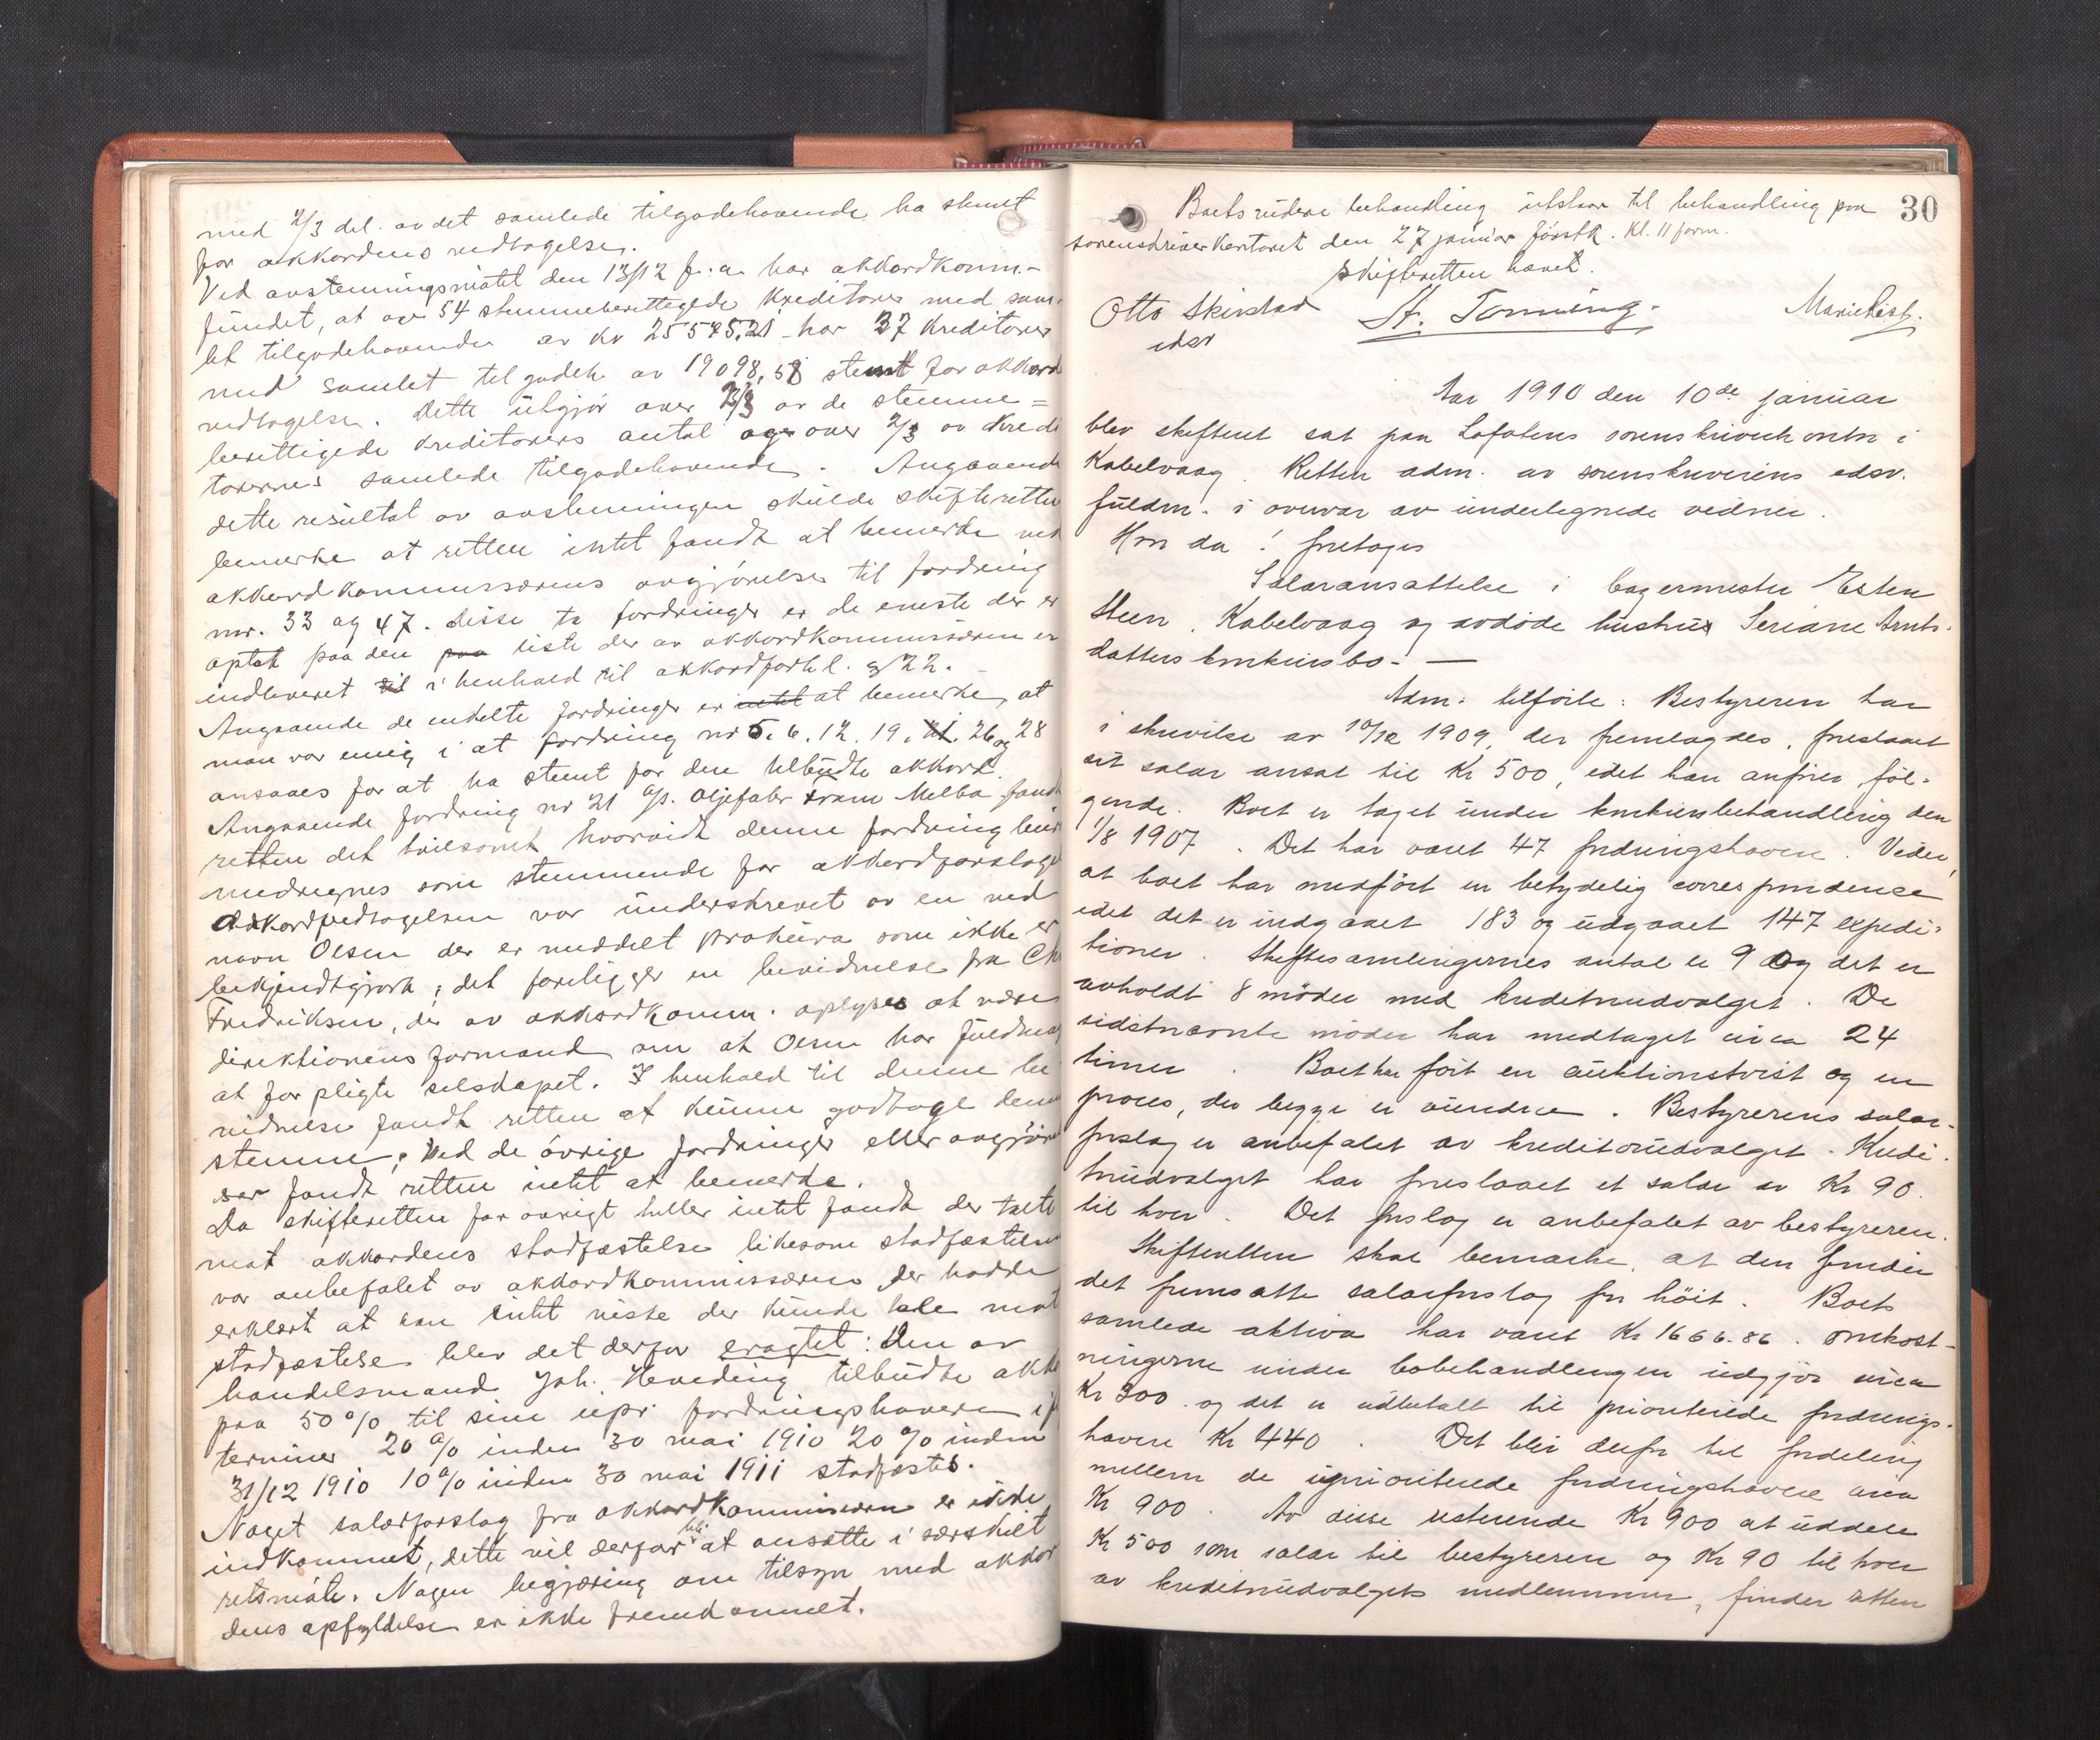 med 2/3 del. av det samlede tilgodehavende ha stemt
for akkordens vedtagelse.
Ved avstemningsmøtet den 13/12 f.a. har akkordkomm.-
fundet, at av 54 stemmeberettigede kreditorer med sam-
let tilgodehavende av kr 25575,21 har 37 kreditorer
med samlet tilgodeh av 19098,58 stemt for akkord
vedtagelse. Dette utgjør over 2/3 av de stemme=
berettigede kreditorers antal og over 2/3 av kredi
torernes samlede tilgodehavende. Angaaende
dette resultat av avstemningen skulde skifteretten
bemerke at retten intet fandt at bemerke ved
akkordkommissærens avgjørelse til fordring
nr. 33 og 47. Disse to fordringer er de eneste der er
optat paa den paa liste der av akkordkommissæren er
indleveret til i henhold til akkordforhl. § 22.
Angaaende de enkelte fordringer er intet at bemerke, at
man var enig i at fordring nr 5. 6. 12. 19. 21. 26 og 28
ansaaes for at ha stemt for den tilbudte akkord.
Angaaende fordring nr 21 A/s. Oljefabr Fram Melbo fandt
retten det tvilsomt hvorvidt denne fordring burde
medregnes som stemmende for akkordforslaget
Akkordvedtagelsen var underskrevet av en ved
navn Olsen der er meddelt prokura som ikke er
bekjendtgjort; det foreligger en bevidnelse fra Chr
Fredriksen, der av akkordkomm. oplyses at være
direktionens formand om at Olsen har fuldmagt
at forpligte selskapet. I henhold til denne be
vidnelse fandt retten at kunne godtage denne
stemme; Ved de øvrige fordringer eller avgjørel
ser fandt retten intet at bemerke.
Da skifteretten forøvrigt heller intet fandt der talte
mot akkordens stadfæstelse likesom stadfæstelsen
var anbefalet av akkordkommissæren der hadde
erklært at han intet viste der kunde tale mot
stadfæstelse blev det derfor eragtet: Den av
handelsmand Joh. Heveding tilbudte akkord
paa 50% til sine upr. fordringshavere i
terminer 20% inden 30 mai 1910 20% inden
31/12 1910 10% inden 30 mai 1911 stadfæstes.
Noget salærforslag fra akkordkommissæren er ikke
indkommet, dette vil derfor bli at ansætte i særskilt
retsmøte. Nogen begjæring om tilsyn med akkor
dens opfyldelse er ikke fremkommet.
30
Boets videre behandling utstaar til behandling paa
sorenskriverkontoret den 27 januar førstk. Kl. 11 form.
Skifteretten hævet.
Otto Skirstad A. Tønning. Marie Rist.
edsv
Aar 1910 den 10de januar
blev skifteret sat paa Lofotens sorenskriverkontor i
Kabelvaag. Retten adm. av sorenskriverens edsv.
fuldm. i overvær av undertegnede vidner.
Hvor da! foretages
Salæransættelse i bagermester Esten
Steen, Kabelvaag og avdøde hustru Seriane Arnts-
datters konkursbo. —
Adm. tilførte: Bestyreren har
i skrivelse av 10/12 1909, der fremlagdes, foreslaaet
sit salær ansat til Kr 500, idet han anfører føl-
gende. Boet er taget under konkursbehandling den
1/8 1907. Det har været 47 fordringshavere. Videre,
at boet har medført en betydelig correspondence
idet det er indgaaet 183 og udgaaet 147 expedi=
tioner. Skiftesamlingernes antal er 9 og det er
avholdt 8 møder med kreditorudvalget. De
sidstnævnte møder har medtaget circa 24
timer. Boet har ført en auktionstvist og en
proces, der begge er vundne. Bestyrerens salær-
forslag er anbefalet av kreditorudvalget. Kredi-
torudvalget har foreslaaet et salær av Kr 90.
til hver. Det forslag er anbefalet av bestyreren.
Skifteretten skal bemærke, at den finder
det fremsatte salærforslag for høit. Boets
samlede aktiva har været Kr 1666.86. Omkost-
ningerne under bobehandlingen udgjør circa
Kr 300. og det er udbetalt til prioriterede fordrings-
havere Kr 440. Det blir derfor til fordeling
mellem de uprioriterede fordringshavere circa
Kr 900. Av disse resterende Kr 900 at uddele
Kr 500 som salær til bestyreren og Kr 90 til hver
av kreditorudvalgets medlemmer, finder retten